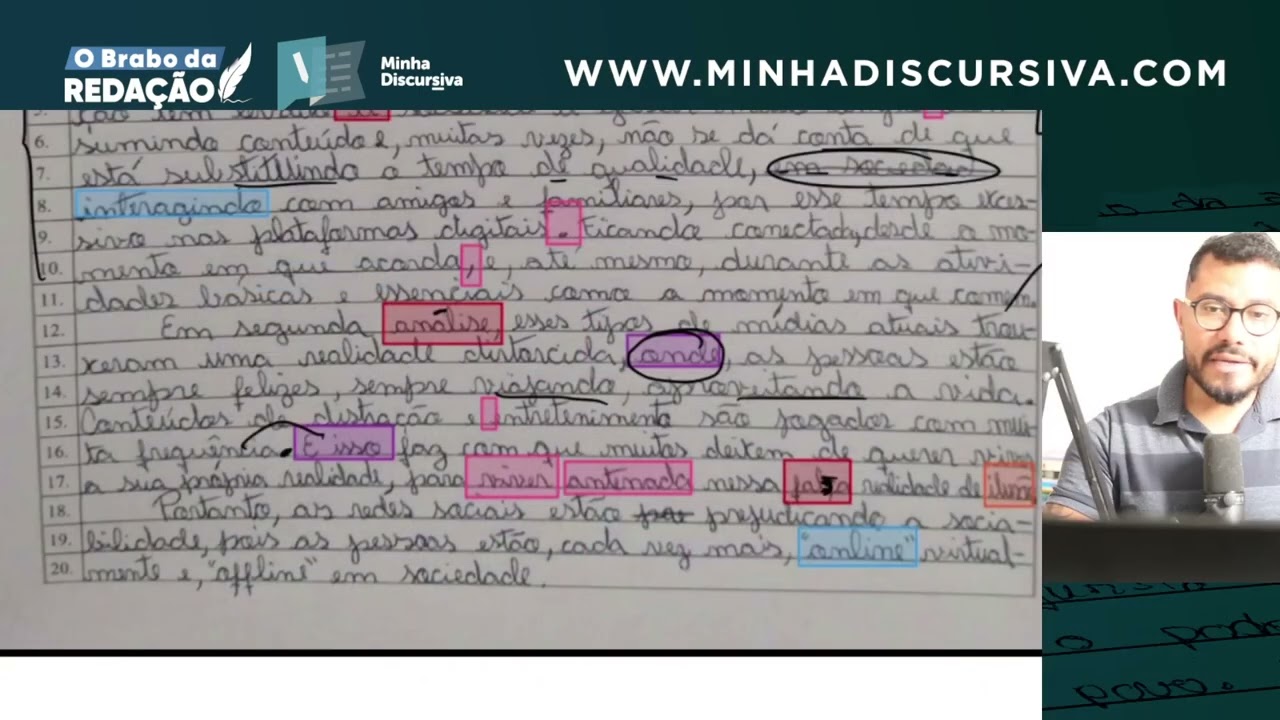 O Brabo da
REDAÇÃO
Minha
Discursiva
WWW.MINHADISCURSIVA.COM
6. sumindo conteúdo e, muitas vezes, não se dá conta de que
7. está substituindo o tempo de qualidade, em sociedade
8. interagindo com amigos e familiares, por esse tempo exces-
9. sivo nas plataformas digitais. Ficando conectado, desde o mo-
10. mento em que acorda, e, até mesmo, durante as ativi-
11. dades básicas e essenciais como o momento em que comem.
12. Em segunda análise, esses tipos de mídias atuais trou-
13. xeram uma realidade distorcida, onde, as pessoas estão
14. sempre felizes, sempre viajando, aproveitando a vida.
15. Conteúdos de distração e entretenimento são jogados com mui-
16. ta frequência. E isso faz com que muitos deixem de querer viver
17. a sua própria realidade, para viver antenado nessa falsa realidade de
18. Portanto, as redes sociais estão prejudicando a socia-
19. bilidade, pois as pessoas estão, cada vez mais, "online" virtual-
20. mente e, "offline" em sociedade.
povo.